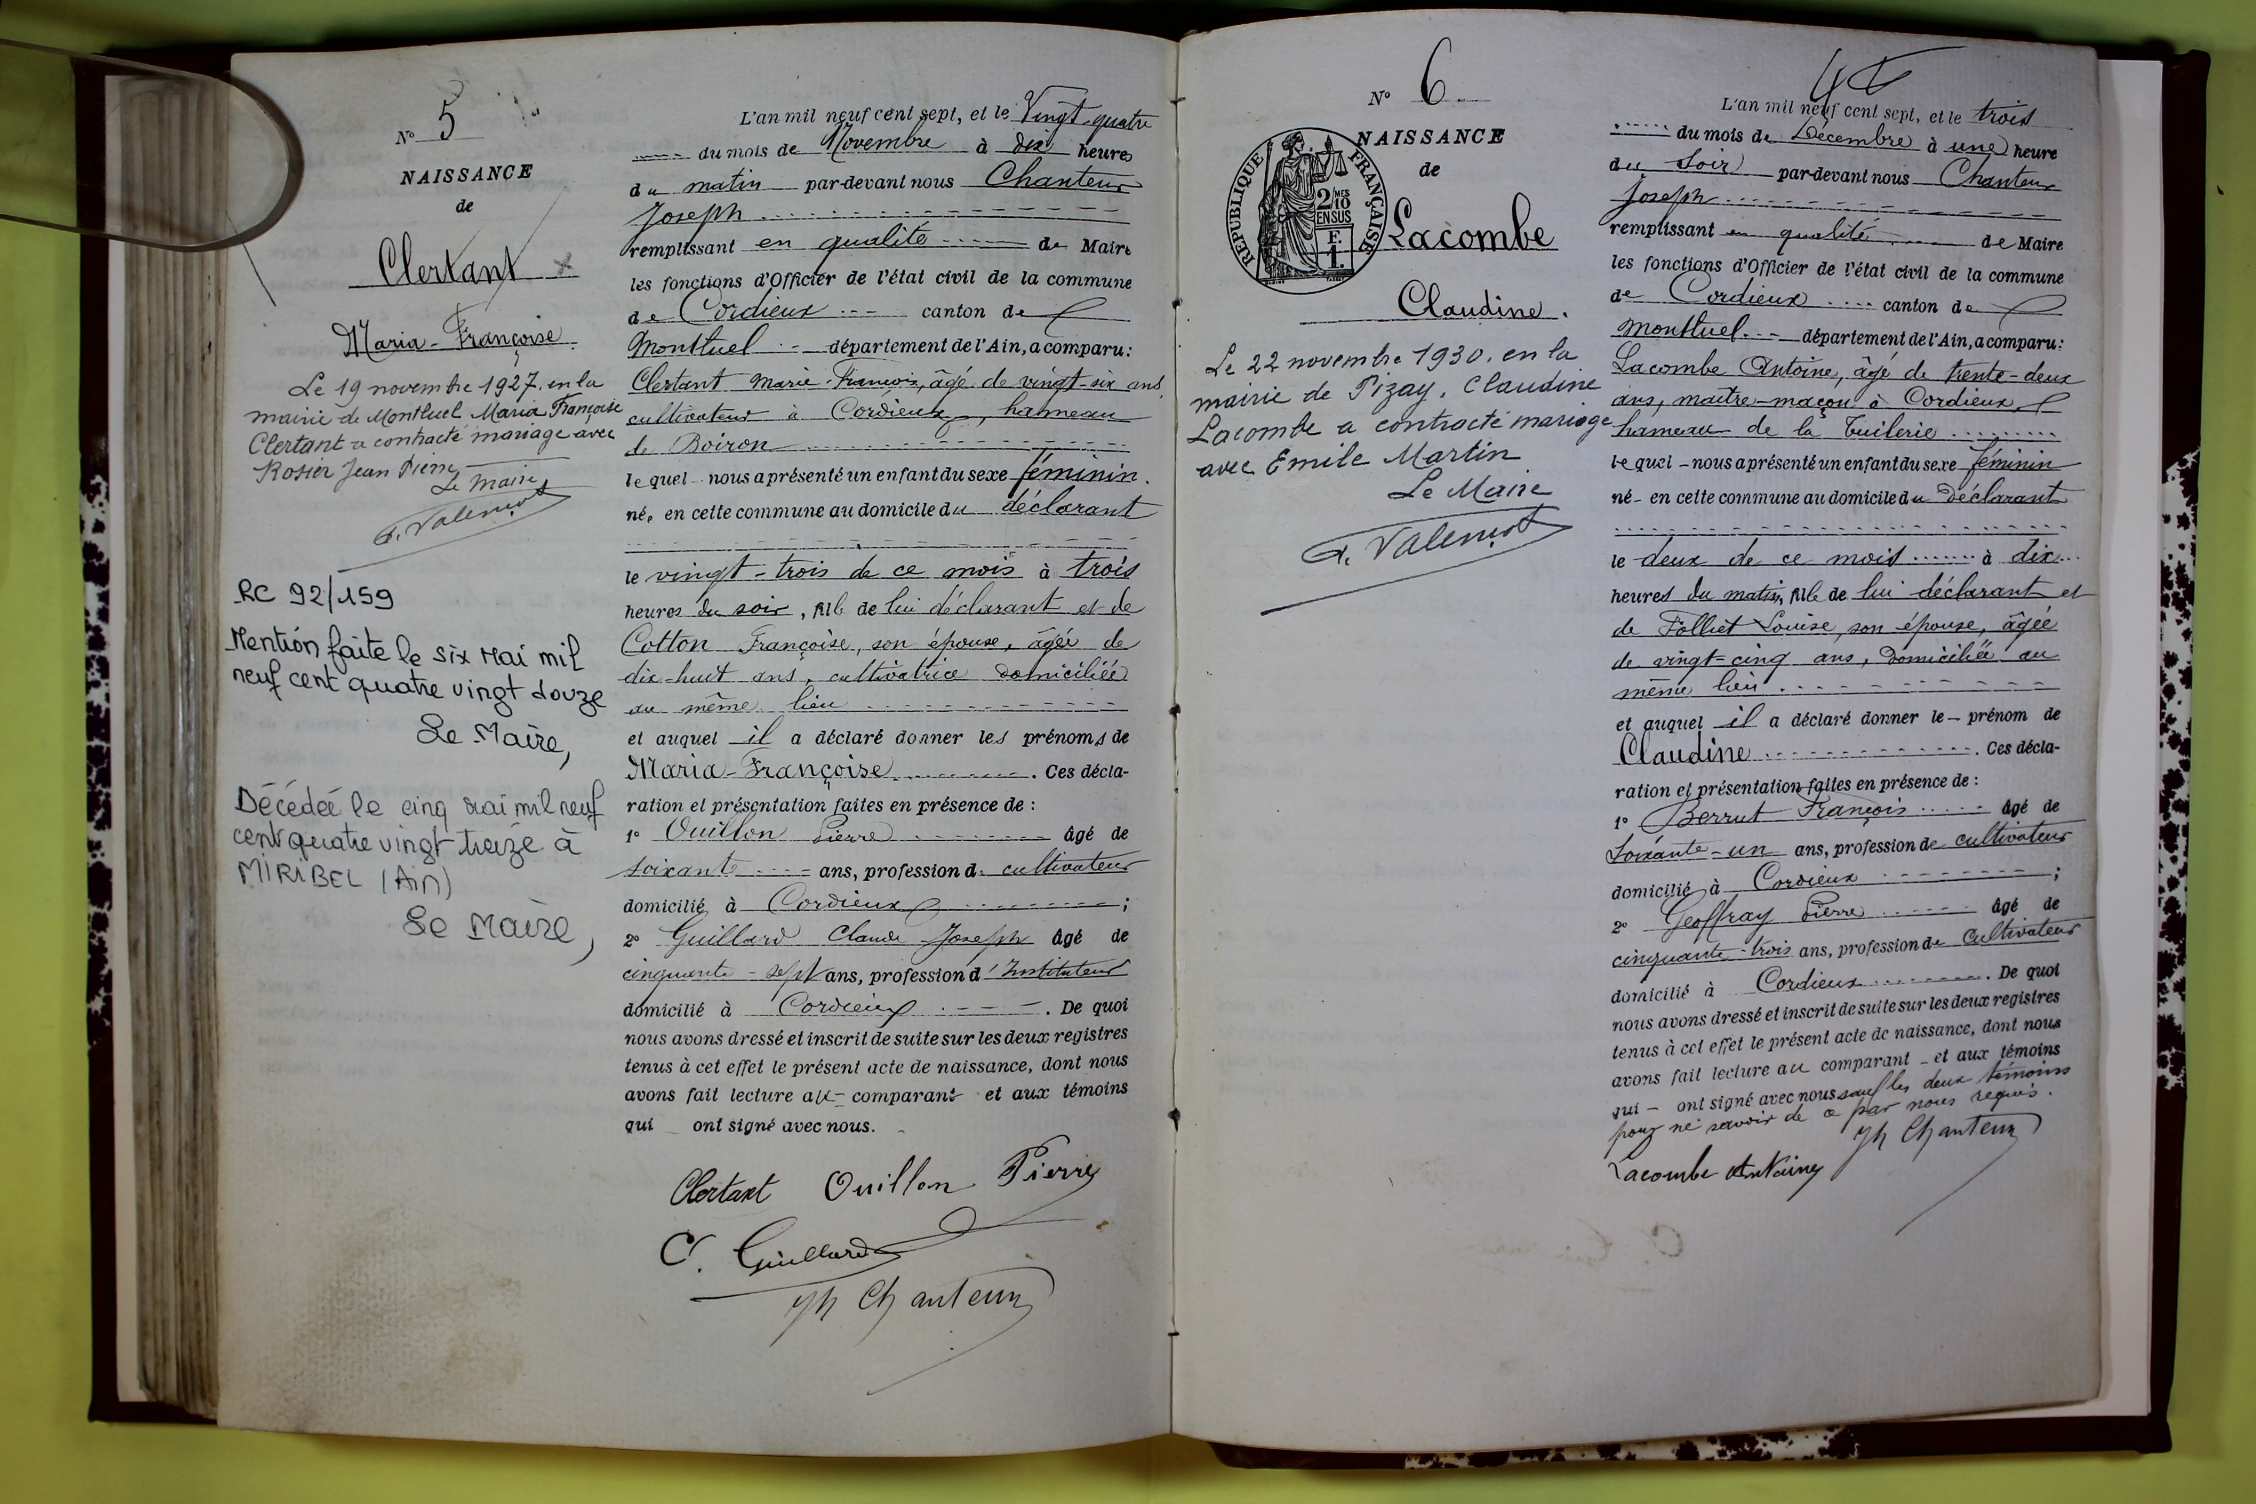 N° 5
NAISSANCE
de
Clertant
Maria-Françoise
Le 19 novembre 1927, en la
mairie de Montluel Maria Françoise
Clertant a contracté mariage avec
Rosier Jean Pierre
Le Maire
RC 92/159
Mention faite le six mai mil
neuf cent quatre vingt douze
Le Maire,
Décédée le cinq mai mil neuf
cent quatre vingt treize à
MIRIBEL (Ain)
Le Maire,
L'an mil neuf cent sept, et le Vingt-quatre
du mois de Novembre à dix heures
du matin par-devant nous Chanteur
Joseph
remplissant en qualité de Maire
les fonctions d'Officier de l'état civil de la commune
de Cordieux canton de
Montluel département de l'Ain, a comparu :
Clertant Marie-François, âgé de vingt-six ans
cultivateur à Cordieux, hameau
de Boiron
lequel nous a présenté un enfant du sexe féminin.
né, en cette commune au domicile du déclarant
le vingt-trois de ce mois à trois
heures du soir, fille de lui déclarant et de
Cotton Françoise, son épouse, âgée de
dix-huit ans, cultivatrice domiciliée
au même lieu
et auquel il a déclaré donner les prénoms de
Maria-Françoise. Ces décla-
ration et présentation faites en présence de :
1° Ouillon Pierre âgé de
soixante ans, profession de cultivateur
domicilié à Cordieux ;
2° Guillard Claude Joseph âgé de
cinquante-sept ans, profession d'Instituteur
domicilié à Cordieux. De quoi
nous avons dressé et inscrit de suite sur les deux registres
tenus à cet effet le présent acte de naissance, dont nous
avons fait lecture au comparant et aux témoins
qui ont signé avec nous.
Clertant Ouillon Pierre
C. Guillard
Jh Chanteur
N° 6
NAISSANCE
de
RÉPUBLIQUE FRANÇAISE
2 MES
10
EN SUS
F.
1.
Lacombe
Claudine.
Le 22 novembre 1930, en la
mairie de Pizay, Claudine
Lacombe a contracté mariage
avec Emile Martin
Le Maire
L'an mil neuf cent sept, et le trois
du mois de Décembre à une heure
du soir par-devant nous Chanteur
Joseph
remplissant en qualité de Maire
les fonctions d'Officier de l'état civil de la commune
de Cordieux canton de
Montluel département de l'Ain, a comparu :
Lacombe Antoine, âgé de trente-deux
ans, maître-maçon à Cordieux
hameau de la Tuilerie
lequel nous a présenté un enfant du sexe féminin
né en cette commune au domicile du déclarant
le deux de ce mois à dix
heures du matin, fille de lui déclarant et
de Folliet Louise, son épouse, âgée
de vingt-cinq ans, domiciliée au
même lieu
et auquel il a déclaré donner le prénom de
Claudine. Ces décla-
ration et présentation faites en présence de :
1° Berrut François âgé de
soixante-un ans, profession de cultivateur
domicilié à Cordieux ;
2° Geoffray Pierre âgé de
cinquante-trois ans, profession de cultivateur
domicilié à Cordieux. De quoi
nous avons dressé et inscrit de suite sur les deux registres
tenus à cet effet le présent acte de naissance, dont nous
avons fait lecture au comparant et aux témoins
qui ont signé avec nous sauf les deux témoins
pour ne savoir de ce par nous requis.
Jh Chanteur
Lacombe Antoine